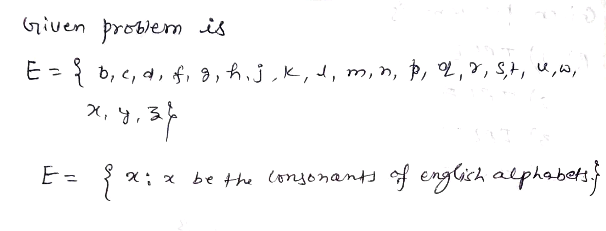 Given problem is
E = { b, c, d, f, g, h, j, k, l, m, n, p, q, r, s, t, u, w,
x, y, z }
E = { x : x be the consonants of english alphabets }